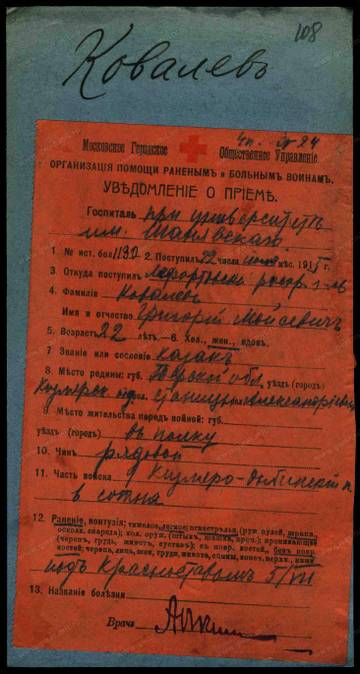 108
Ковалевъ
Московское Городское Общественное Управленіе.
ОРГАНИЗАЦІЯ ПОМОЩИ РАНЕНЫМЪ и БОЛЬНЫМЪ ВОИНАМЪ.
УВѢДОМЛЕНІЕ О ПРІЕМѢ.
Госпиталь при университетѣ
им. Шанявскаго
1. № ист. бол. 1192 2. Поступилъ 22 числа мѣс. 1915 г.
3. Откуда поступилъ
4. Фамилія Ковалевъ
Имя и отчество Григорій Мойсеевичъ
5. Возрастъ 22 лѣтъ.—6. Хол., жен., вдов.
7. Званіе или сословіе казакъ
8. Мѣсто родины: губ. Терской обл. уѣздъ (городъ)
станицы Александрійской
9. Мѣсто жительства передъ войной: губ.
уѣздъ (городъ) въ полку
10. Чинъ рядовой
11. Часть войска Кизляро-Гребенскій п.
сотня
12. Раненіе, контузія: тяжелое, легкое; огнестрѣльн. (руж. пулей, шрапн.,
осколк. снаряда); хол. оруж. (штык., шашка, проч.); проникающее
(черепъ, грудь, животъ, суставъ); съ повр. костей, безъ повр.
костей; черепа, лица, шеи, груди, живота, спины, конеч. верхн., нижн.
подъ Красноставомъ 5/VII
13. Названіе болѣзни
Врачъ